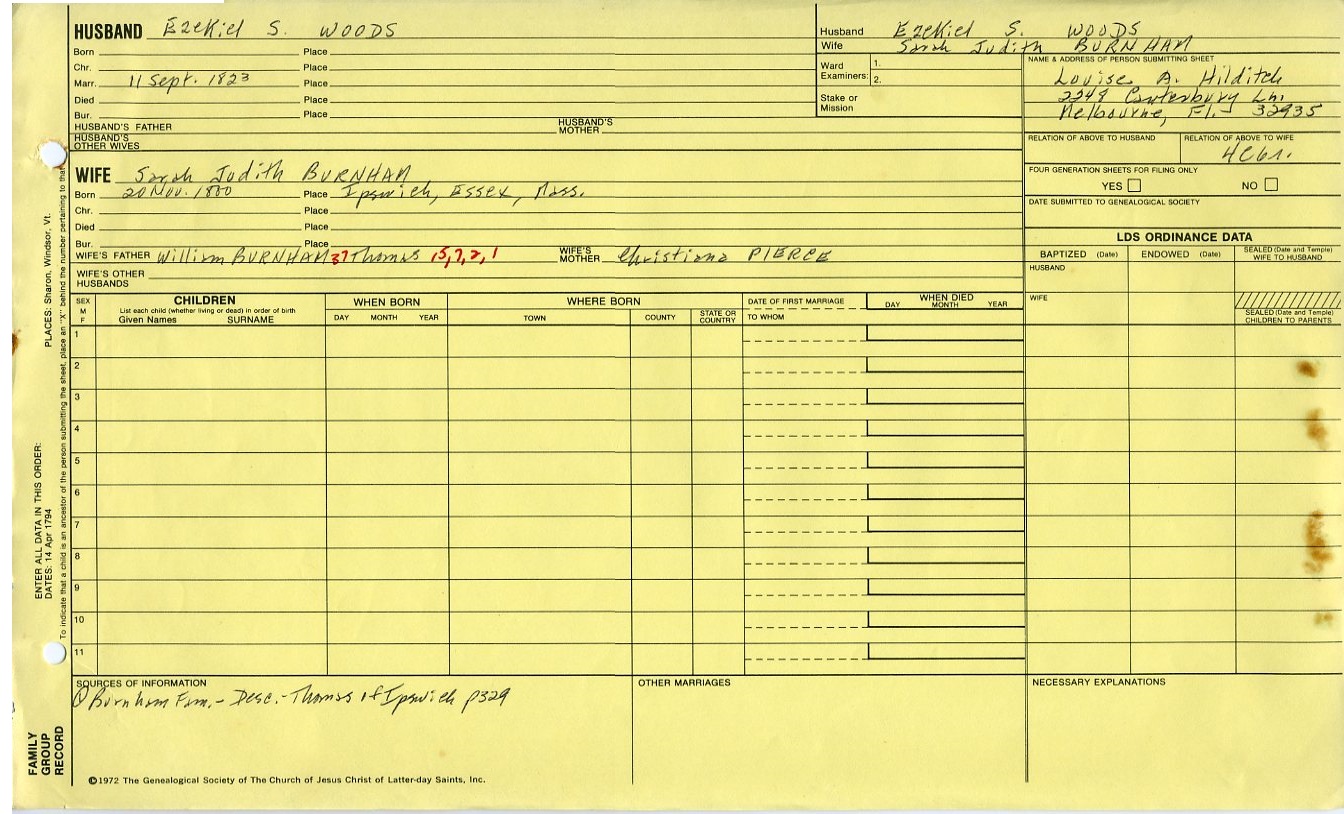 HUSBAND Ezekiel S. WOODS
Born Place
Chr. Place
Marr. 11 Sept. 1823 Place
Died Place
Bur. Place
HUSBAND'S FATHER HUSBAND'S MOTHER
HUSBAND'S OTHER WIVES
WIFE Sarah Judith BURNHAM
Born 20 Nov. 1800 Place Ipswich, Essex, Mass.
Chr. Place
Died Place
Bur. Place
WIFE'S FATHER William BURNHAM 37 Thomas 15,7,2,1 WIFE'S MOTHER Christiana PIERCE
WIFE'S OTHER HUSBANDS
Husband Ezekiel S. WOODS
Wife Sarah Judith BURNHAM
Ward Examiners: 1.
2.
Stake or Mission
NAME & ADDRESS OF PERSON SUBMITTING SHEET
Louise A. Hilditch
2248 Canterbury Ln.
Melbourne, Fl. 32935
RELATION OF ABOVE TO HUSBAND RELATION OF ABOVE TO WIFE
4C6r.
FOUR GENERATION SHEETS FOR FILING ONLY
YES NO
DATE SUBMITTED TO GENEALOGICAL SOCIETY
LDS ORDINANCE DATA
BAPTIZED (Date) ENDOWED (Date) SEALED (Date and Temple) WIFE TO HUSBAND
HUSBAND
WIFE
SEALED (Date and Temple) CHILDREN TO PARENTS
SEX M F
CHILDREN
List each child (whether living or dead) in order of birth
Given Names SURNAME
WHEN BORN
DAY MONTH YEAR
WHERE BORN
TOWN COUNTY STATE OR COUNTRY
DATE OF FIRST MARRIAGE
TO WHOM
WHEN DIED
DAY MONTH YEAR
1
2
3
4
5
6
7
8
9
10
11
SOURCES OF INFORMATION
① Burnham Fam.- Desc.- Thomas of Ipswich p329
OTHER MARRIAGES
NECESSARY EXPLANATIONS
©1972 The Genealogical Society of The Church of Jesus Christ of Latter-day Saints, Inc.
FAMILY GROUP RECORD
ENTER ALL DATA IN THIS ORDER:
DATES: 14 Apr 1794 PLACES: Sharon, Windsor, Vt.
To indicate that a child is an ancestor of the person submitting the sheet, place an "X" behind the number pertaining to that